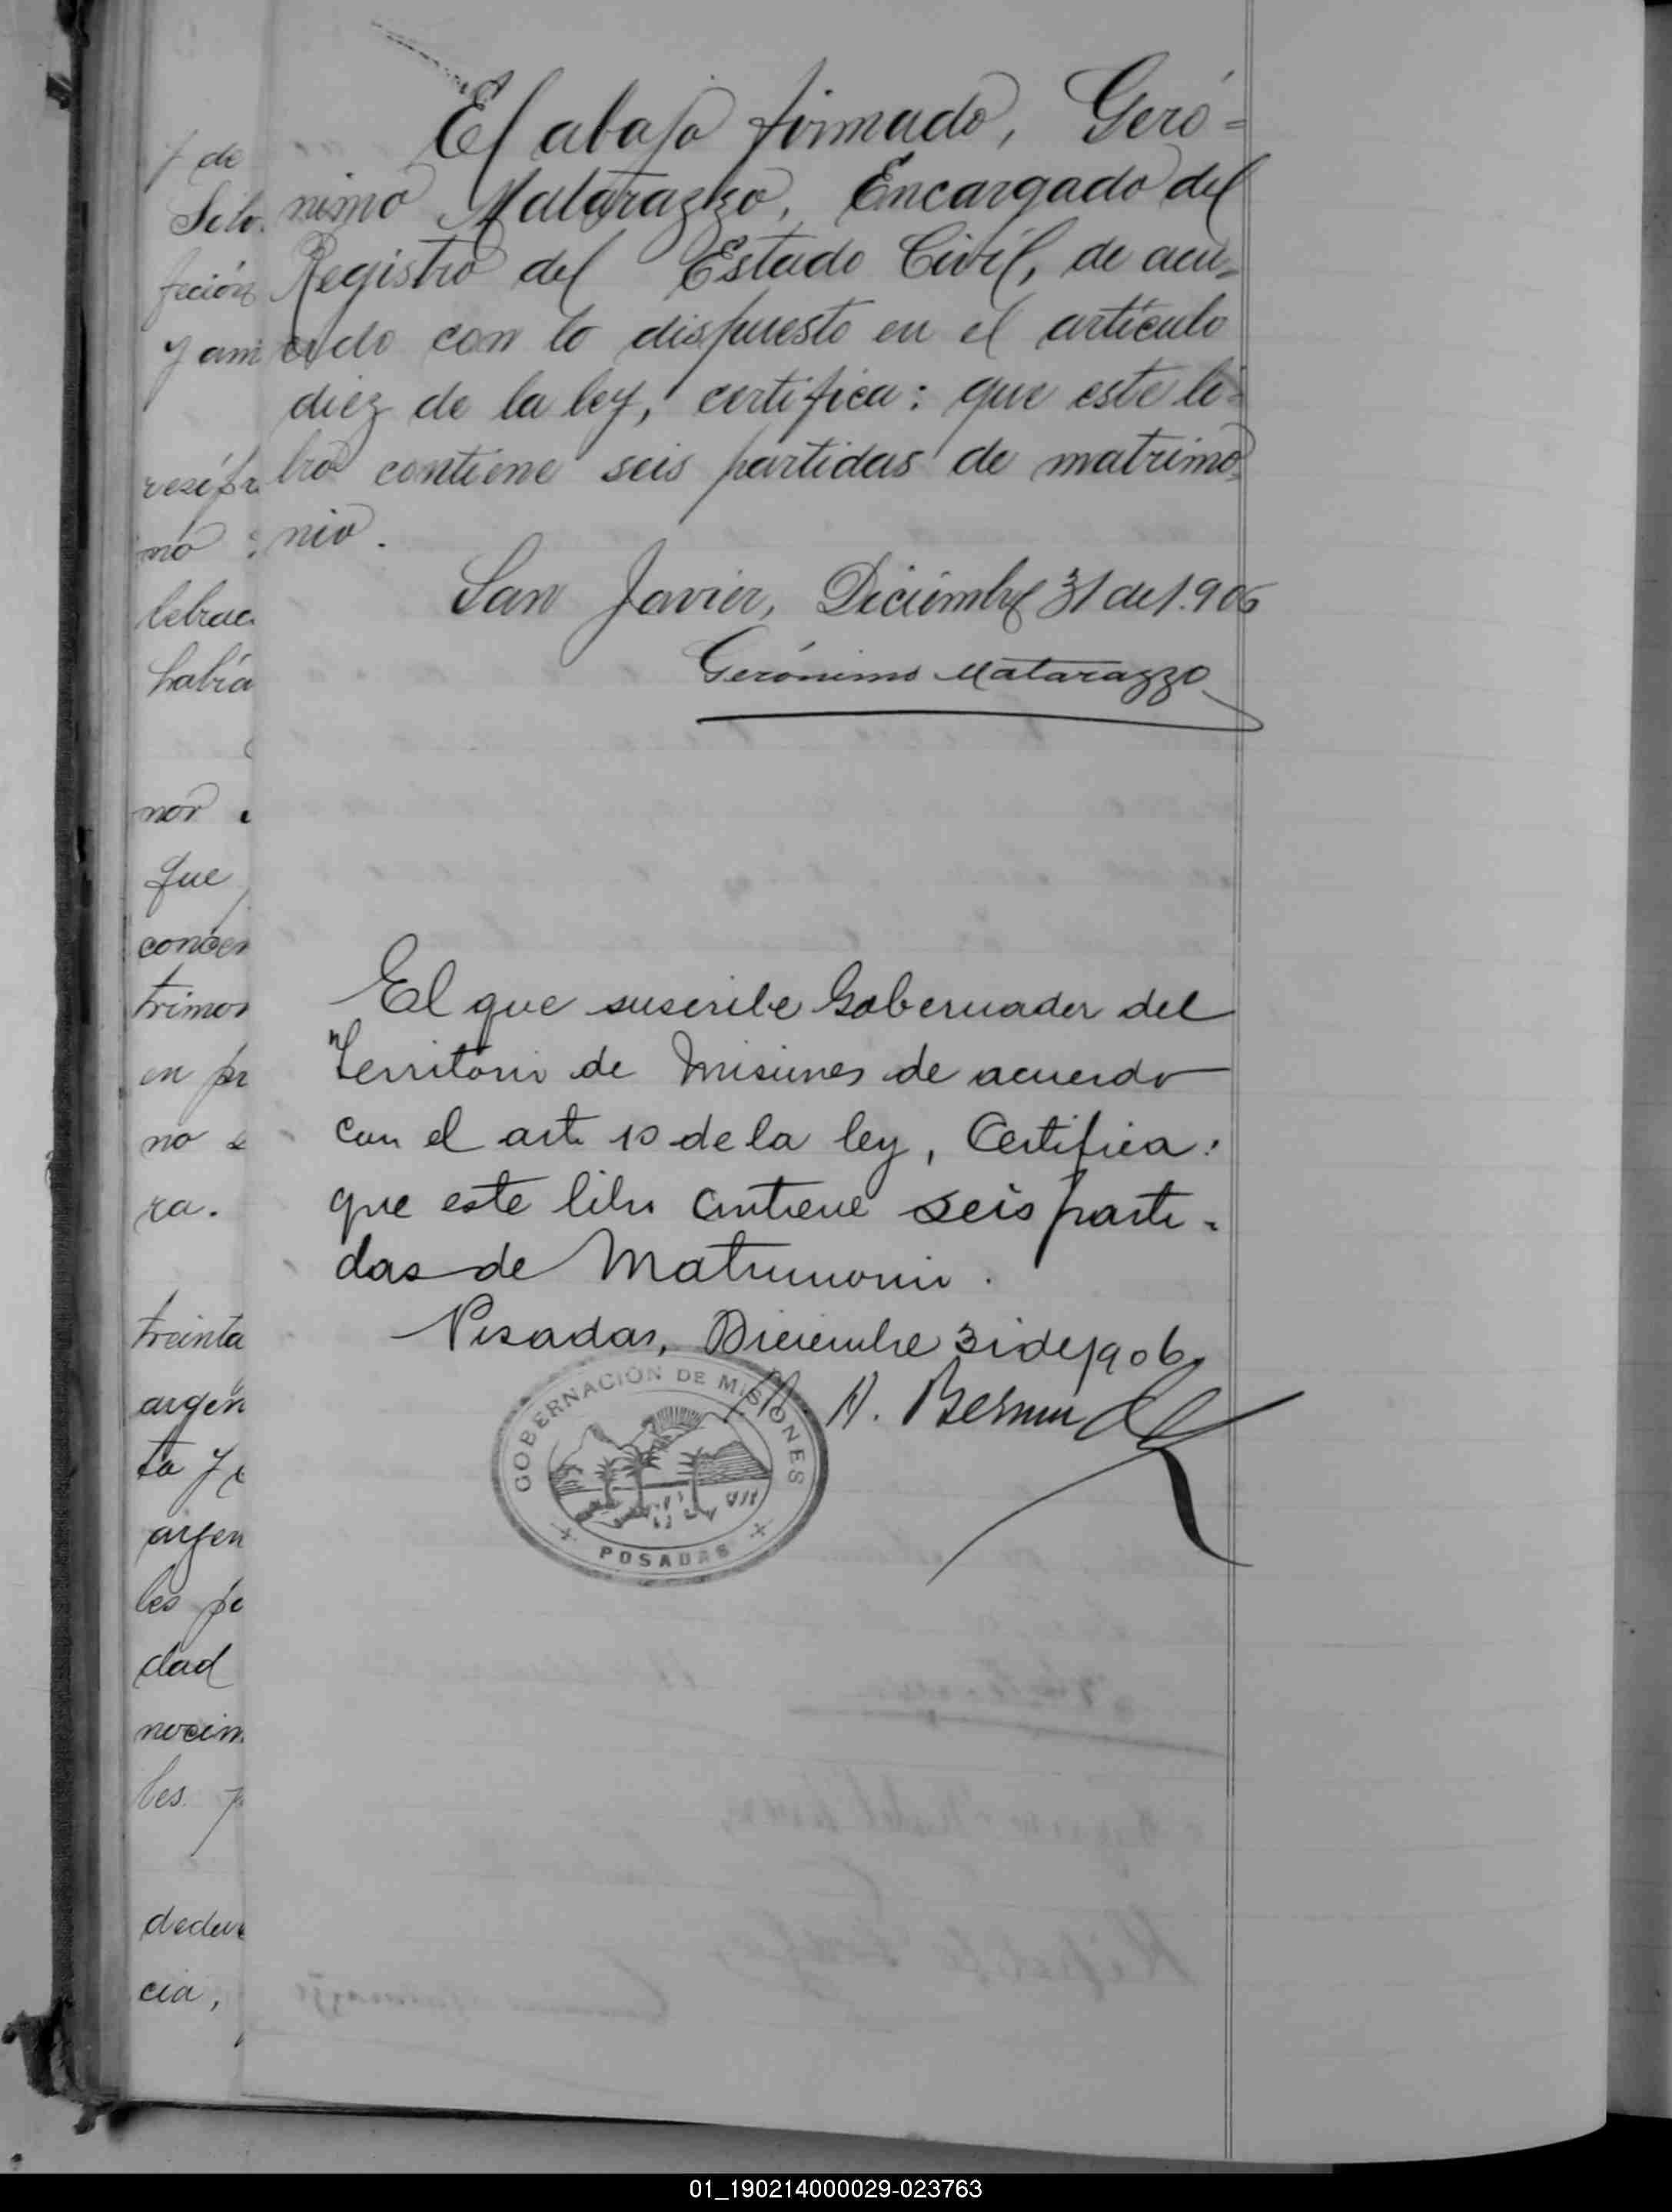 El abajo firmado, Geró=
nimo Matarazzo, Encargado del
Registro del Estado Civil, de acu-
erdo con lo dispuesto en el artículo
diez de la ley, certifica: que este li-
bro contiene seis partidas de matrimo-
nio.
San Javier, Diciembre 31 de 1.906
Gerónimo Matarazzo
El que suscribe Gobernador del
Territorio de Misiones de acuerdo
con el art. 10 de la ley, Certifica:
que este libro contiene seis parti-
das de Matrimonio.
Posadas, Diciembre 31 de 1906
GOBERNACIÓN DE MISIONES
POSADAS
y de
feción
y am
mo
lebrac
había
nor
que
concer
trimon
en pr
no
ra.
treinta
argen
ta y
argen
les pe
dad
nocim
les
cia,
01_190214000029-023763